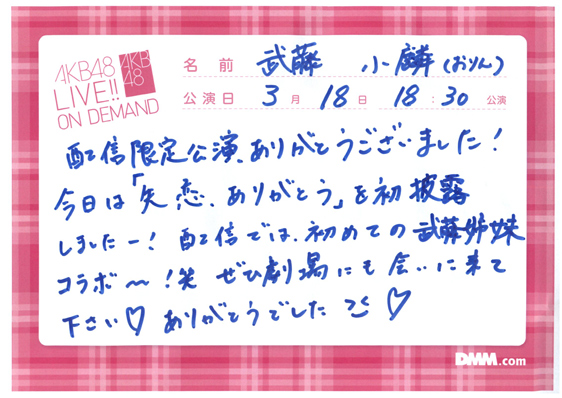 AKB48
LIVE!!
ON DEMAND
AKB
48
名前 武藤 小麟(おりん)
公演日 3月18日 18:30公演
配信限定公演、ありがとうございました!
今日は「失恋、ありがとう」を初披露
しましたー!配信では、初めての武藤姉妹
コラボ〜!笑 ぜひ劇場にも会いに来て
下さい♡ ありがとうでした ♡
DMM.com